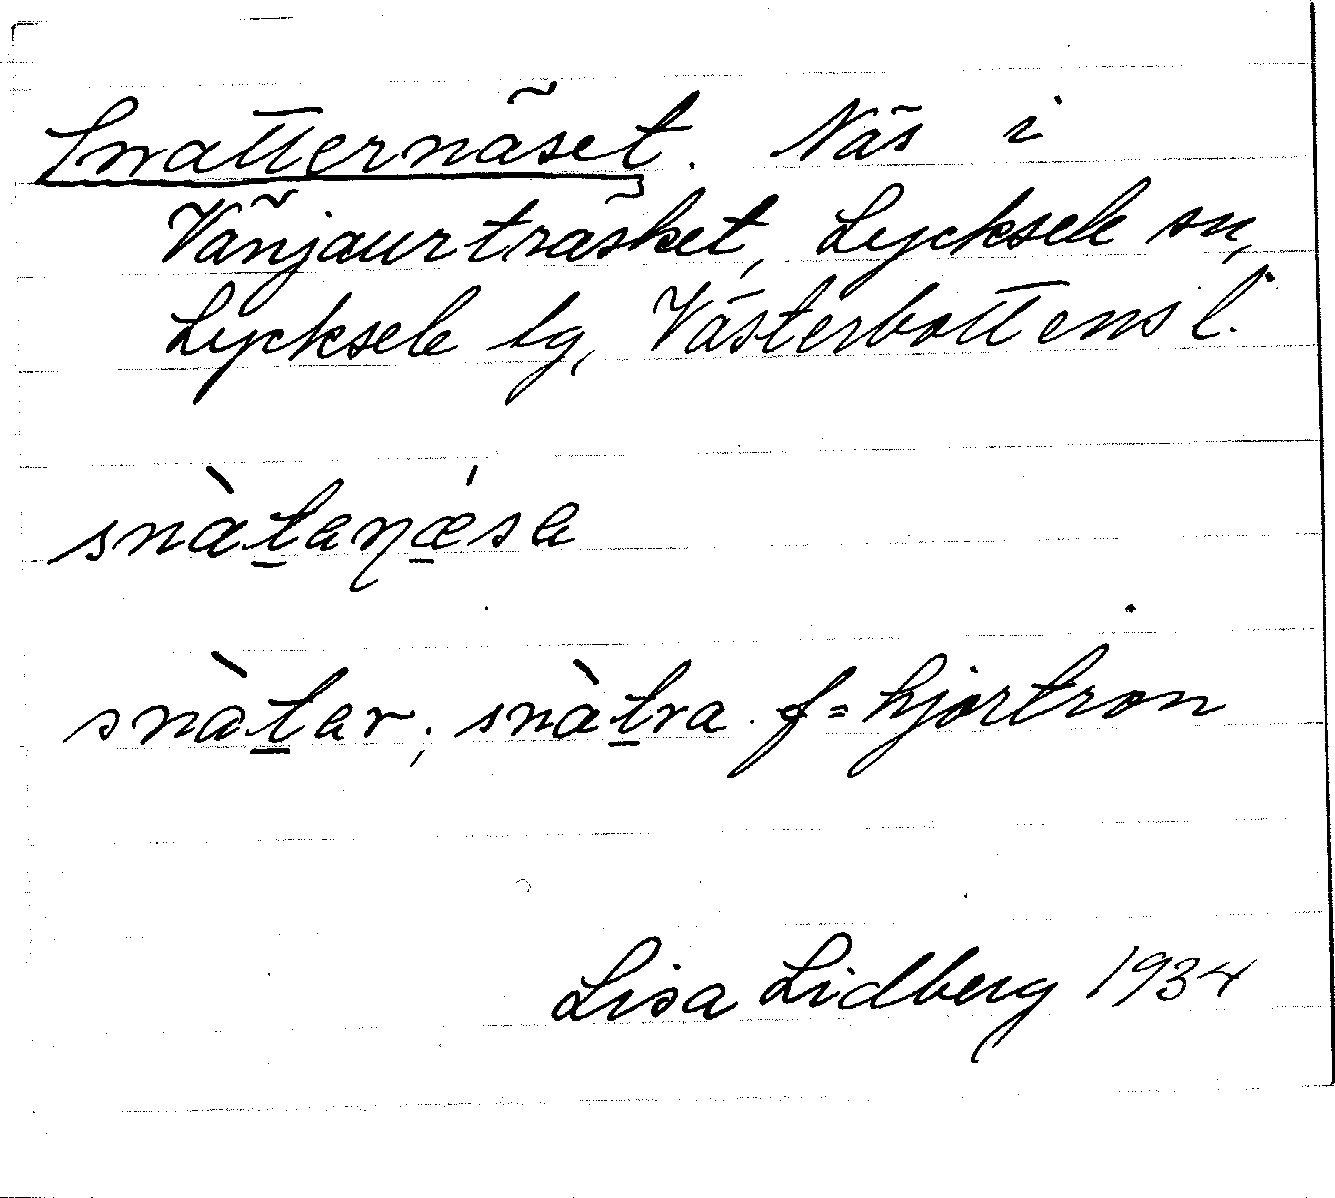 Snatternäset. Näs i
Vänjaurträsket, Lycksele sn,
Lycksele lg, Västerbottens l.
snàt̲aŋǽ̲sa
snàt̲ar, snàt̲ra f = hjortron
Lisa Lidberg 1934